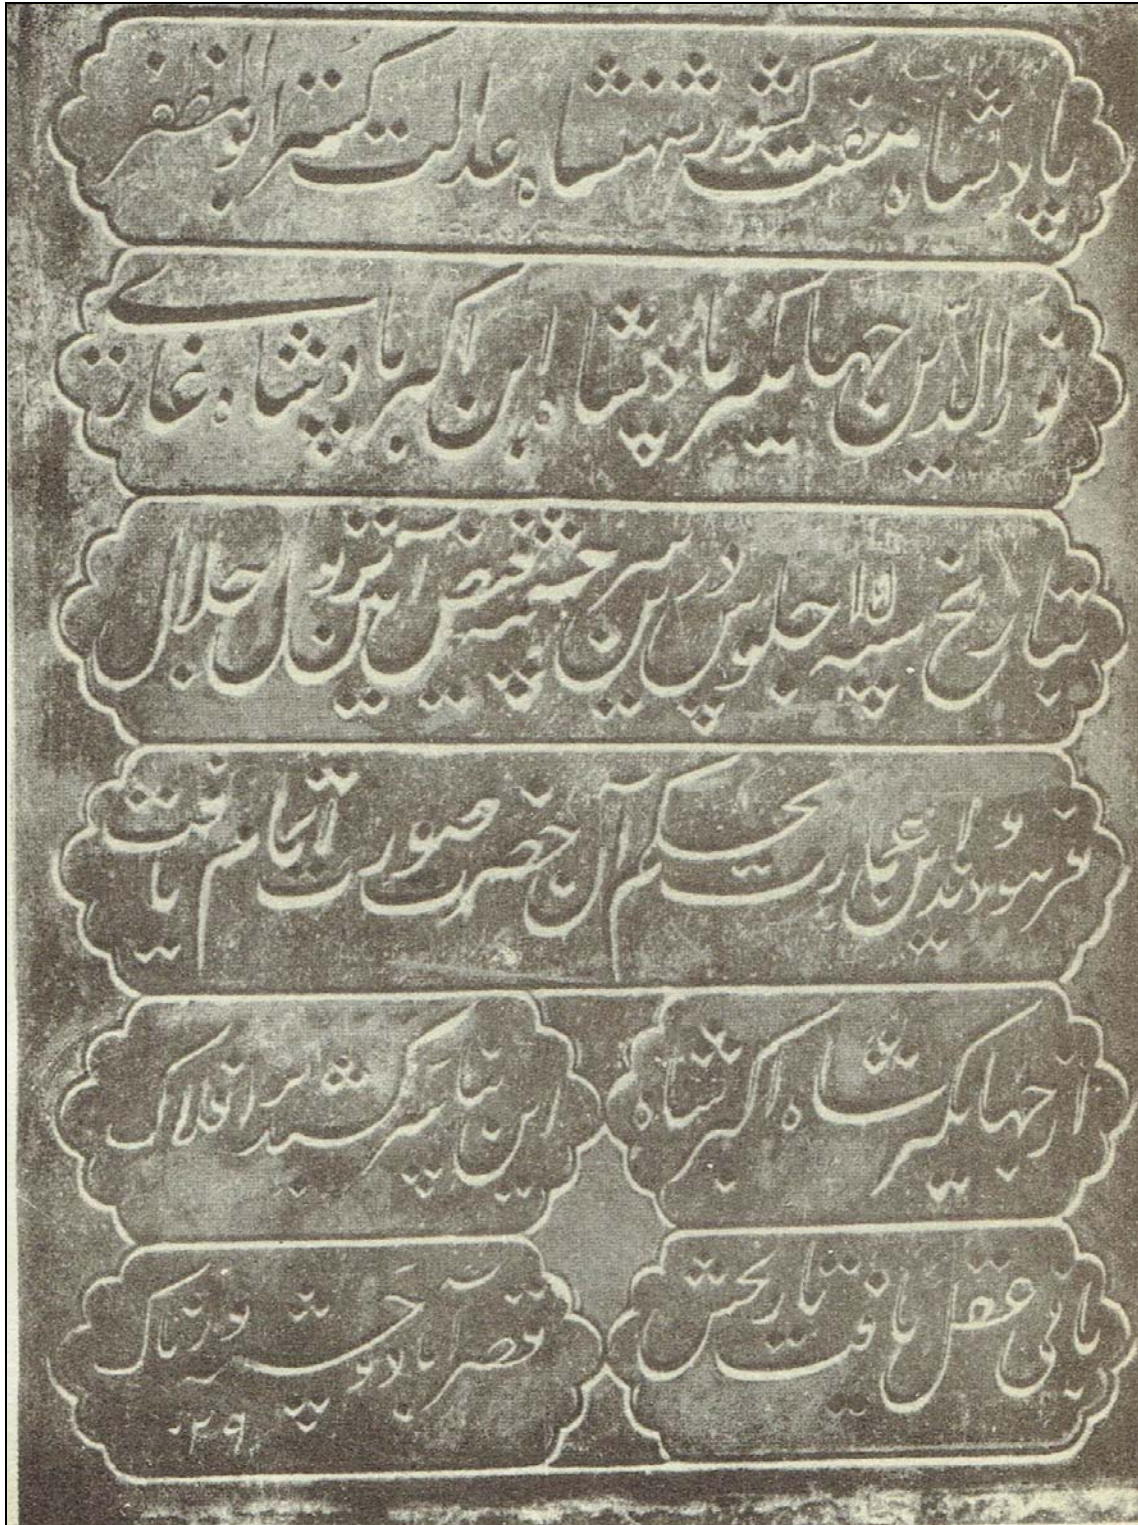 پادشاه هفت کشور شهنشاه عدالت گستر ابوالمظفر
نورالدّین جهانگیر پادشاه ابن اکبر پادشاه غازی
بتاریخ سنه ۱۵ جلوس درین سرچشمه فیض آیین نزول اجلال
فرمودند و این عمارت بحکم آن حضرت صورت اتمام یافت
از جهانگیر شاه اکبر شاه این بنا سر کشید بر افلاک
بانی عقل یافت تاریخش قصر آباد و چشمه ورناک
۱۰۲۹